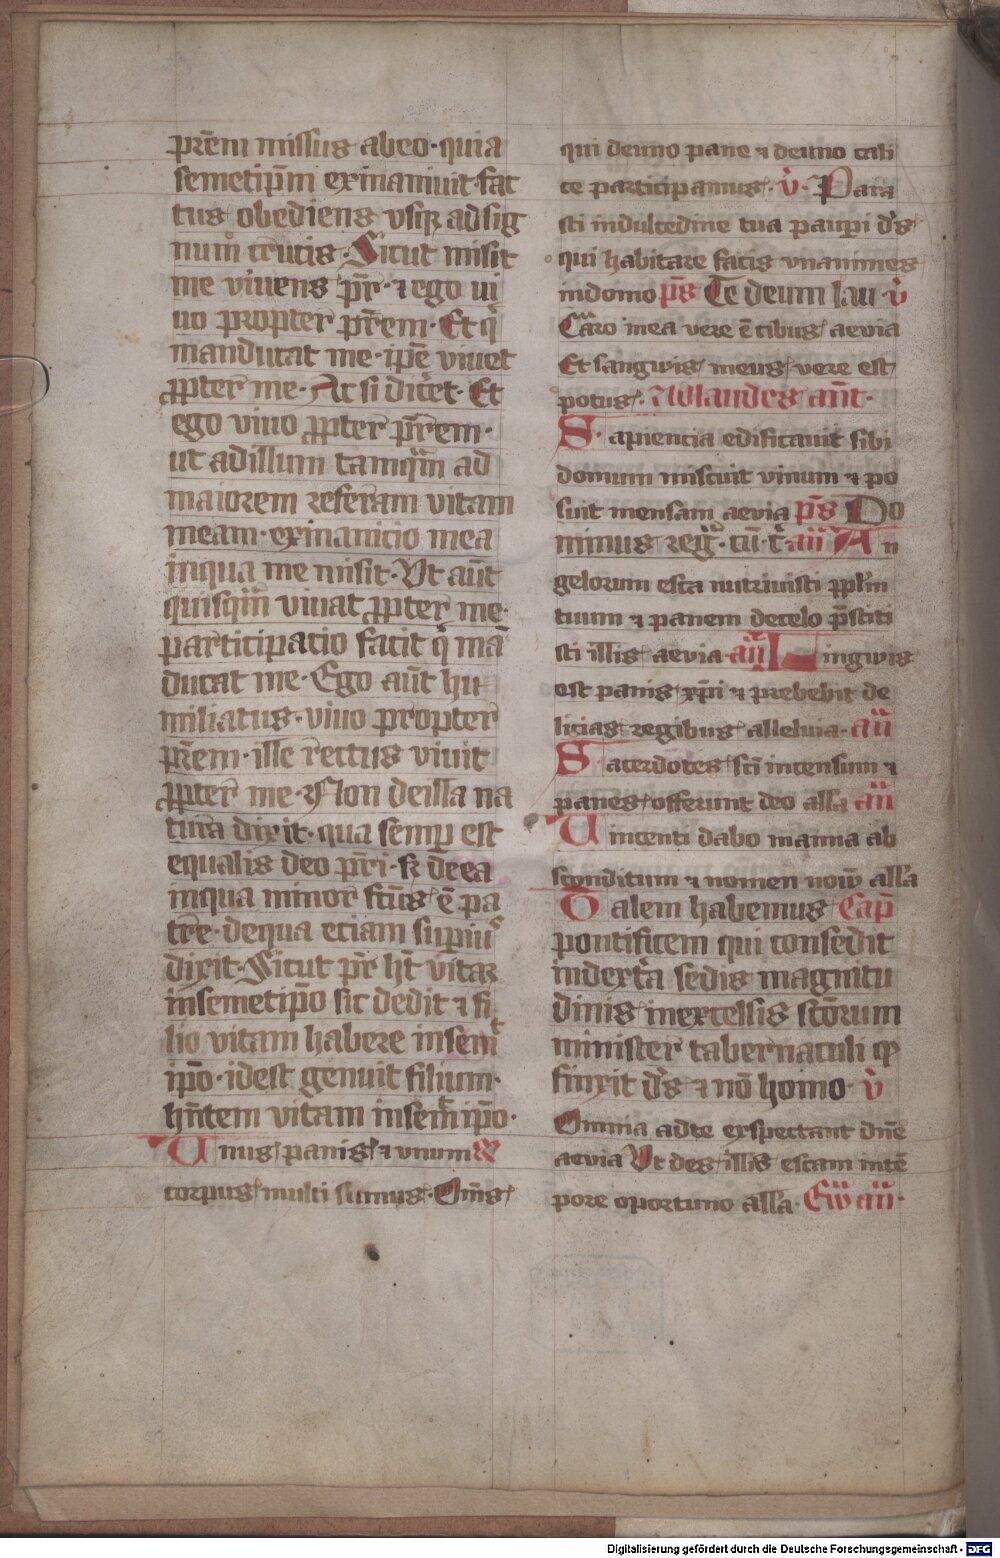 prēm missus abeo·quia
semetip̄m exinaniuit·fac
tus obediens vsꝗ ad sig
num crucis·Sicut misit
me viuens pr̄·⁊ ego ui
uo propter prēm·Et q̇
manducat me·ip̄e viuet
ꝓpter me·Ac si diceret·Et
ego viuo ꝓpter prēm·
ut ad illum tamqᷓm ad
maiorem referam vitam
meam·exinanicio mea
in qua me misit·Vt aūt
quisqᷓm viuat ꝓpter me·
participacio facit q̇ mā
ducat me·Ego aūt hu
miliatus·viuo propter
prēm·ille rectus viuit
ꝓpter me·Non de illa na
tura dixit·qua semꝑ est
equalis deo pr̄i·sꝫ de ea
in qua minor fcūs ē pa
tre·de qua eciam suꝑiꝰ
dixit·Sicut pr̄ hꝫ vitaꝫ
in semetip̄o sic dedit ⁊ fi
lio vitam habere in semͭ
ip̄o·id est genuit filium·
hn̄tem vitam in semͭip̄o·
Unus panis ⁊ vnum ℟
corpus multi sumus·Om̄s
qui de uno pane ⁊ de uno cali
ce participamus·v̇·Para
sti in dulcedine tua pauꝑi ds̄
qui habitare facis vnanimes
in domo ps̄ Te deum lau·v̇
Caro mea vere ē cibus aevia
Et sangwis meus vere est
potus·Ad laudes ant̄·
Sapiencia edificauit sibi
domum miscuit vinum ⁊ po
suit mensam aevia ps̄ Do
minus reḡ·cū·t̄·an̄ An
gelorum esca nutriuisti ppl̄m
tuum ⁊ panem de celo p̄stiti
sti illis aevia·an̄ Pingwis
est panis xp̄i ⁊ prebebit de
licias regibus alleluia·an̄
Sacerdotes sc̄i incensum ⁊
panes offerunt deo all̄a an̄
Uincenti dabo manna ab
sconditum ⁊ nomen nouū all̄a
Talem habemus Cap̄
pontificem qui consedit
in dextra sedis magnitu
dinis in excelsis scōrum
minister tabernaculi qđ
finxit ds̄ ⁊ nō homo·v̇
Omnia ad te exspectant dn̄e
aevia Vt des illis escam in tē
pore oportuno all̄a·Ew̄ an̄·
Digitalisierung gefördert durch die Deutsche Forschungsgemeinschaft - DFG